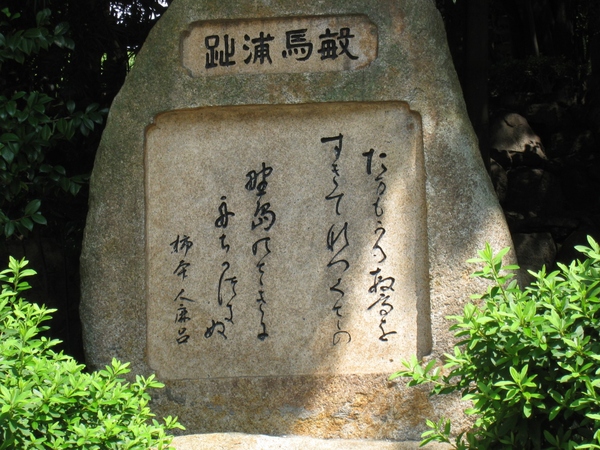 敏馬浦趾
たまもかる敏馬を
すきてなつくさの
野島のさきに
舟ちかつきぬ
柿本人麻呂